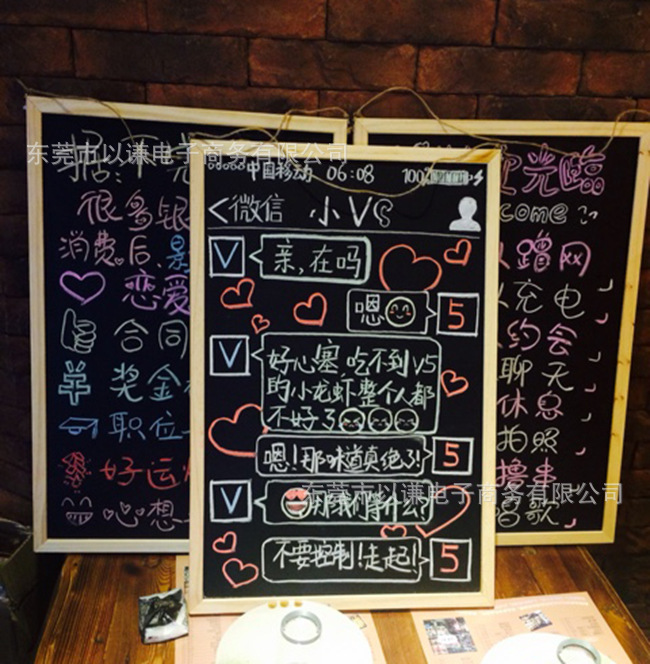 东莞市以谦电子商务有限公司
很多银
消费后,
恋爱
合同
奖金
职位
好运
心想
中国移动 06:08 100%
<微信 小V5
V 亲,在吗
嗯 5
V 好心塞 吃不到V5
的小龙虾整个人都
不好了
嗯!那味道真绝了! 5
V 那我们等什么?
不要控制!走起! 5
光臨
come
蹭网
充电
约会
聊天
休息
拍照
撸串
唱歌
东莞市以谦电子商务有限公司